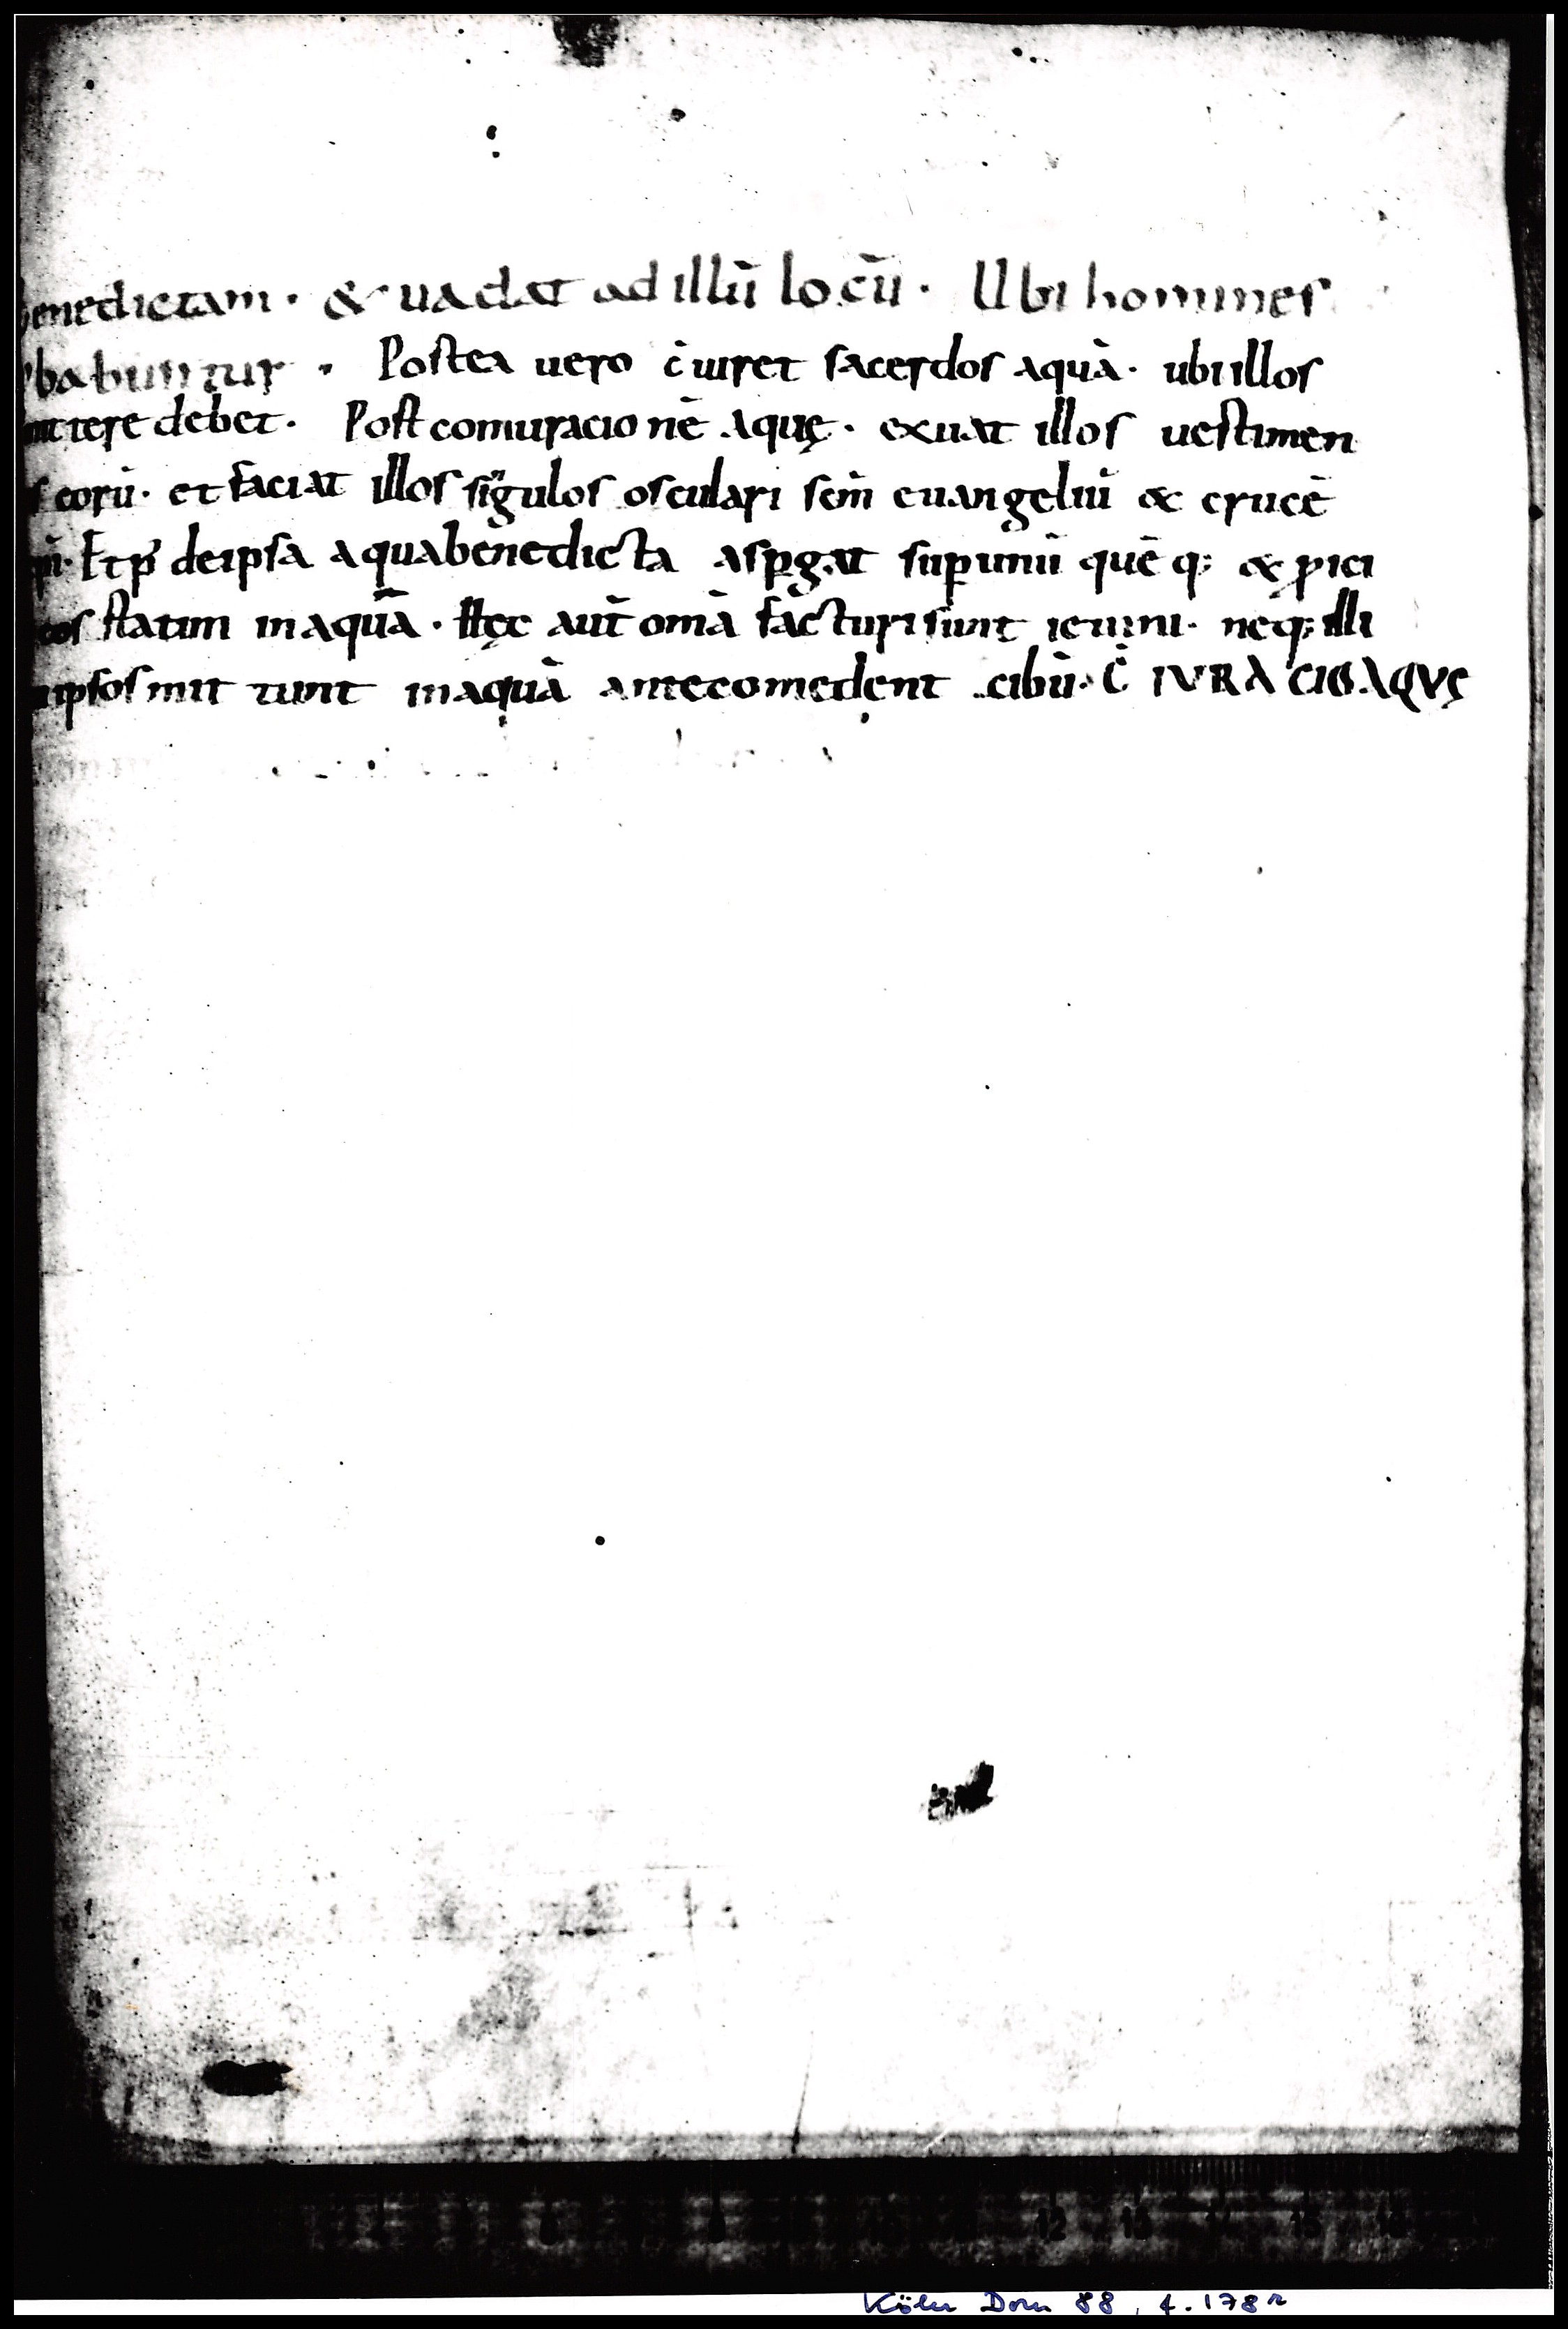 benedictam · & uadat ad illū locū · Ubi homines
babuntur · Postea uero c̄iuret sacerdos aquā · ubi illos
mittere debet · Post coniuracionē aquę · exuat illos uestimen
s eorū · et faciat illos sīgulos osculari scm̄ euangeliū & crucē
pi · Et p̄ de ipsa aqua benedicta aspgat sup unū quēq; & pici
eos statim in aquā · Hęc aut̄ om̄a facturi sunt ieiuni · neq; illi
ipsos mittunt in aquā ante comedent cibū · C̄IVRACIO AQVĘ
12 13 15
Köln Dom 88, f. 178r